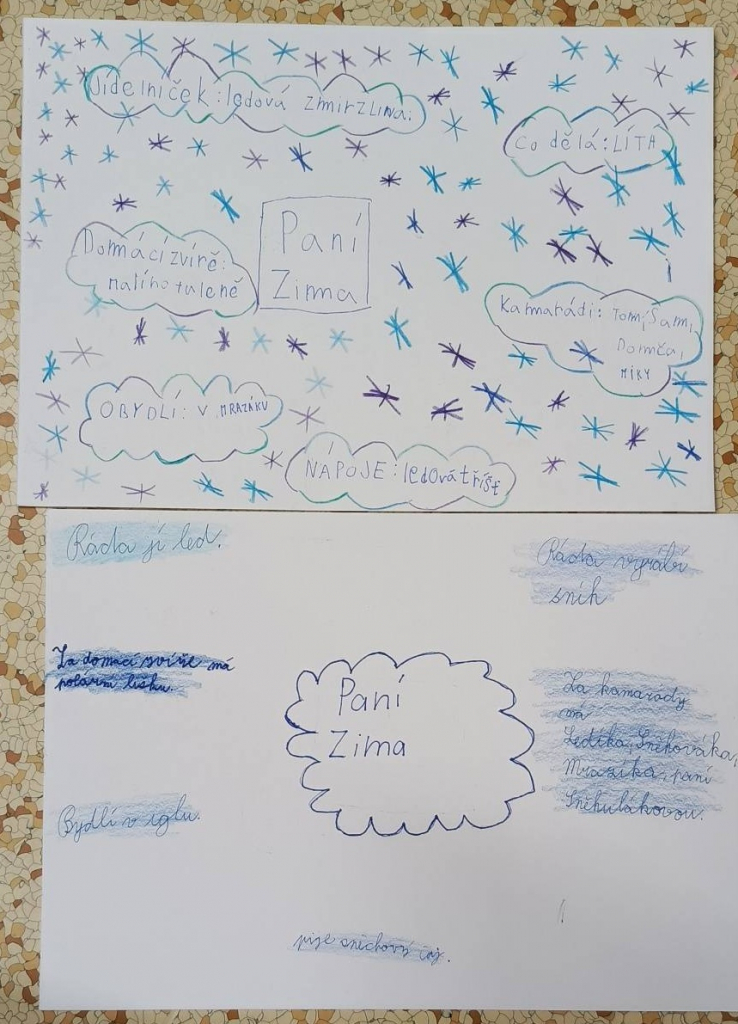 Jídelníček: ledová zmirzlina.
Co dělá: LÍTÁ
Domácí zvíře:
malího tuleně
Paní
Zima
Kamarádi: Tomí, Sami,
Domča,
MÍKY
OBYDLÍ: V MRAZÁKU
NÁPOJE: ledová tříšť
Ráda jí led.
Ráda vyrábí
sníh
Za domací zvíře má
polární lišku.
Paní
Zima
Za kamarady
má
Ledíka, Sněhováka,
Mrazíka, paní
Sněhulákovou.
Bydlí v iglu.
pije sněhový čaj.